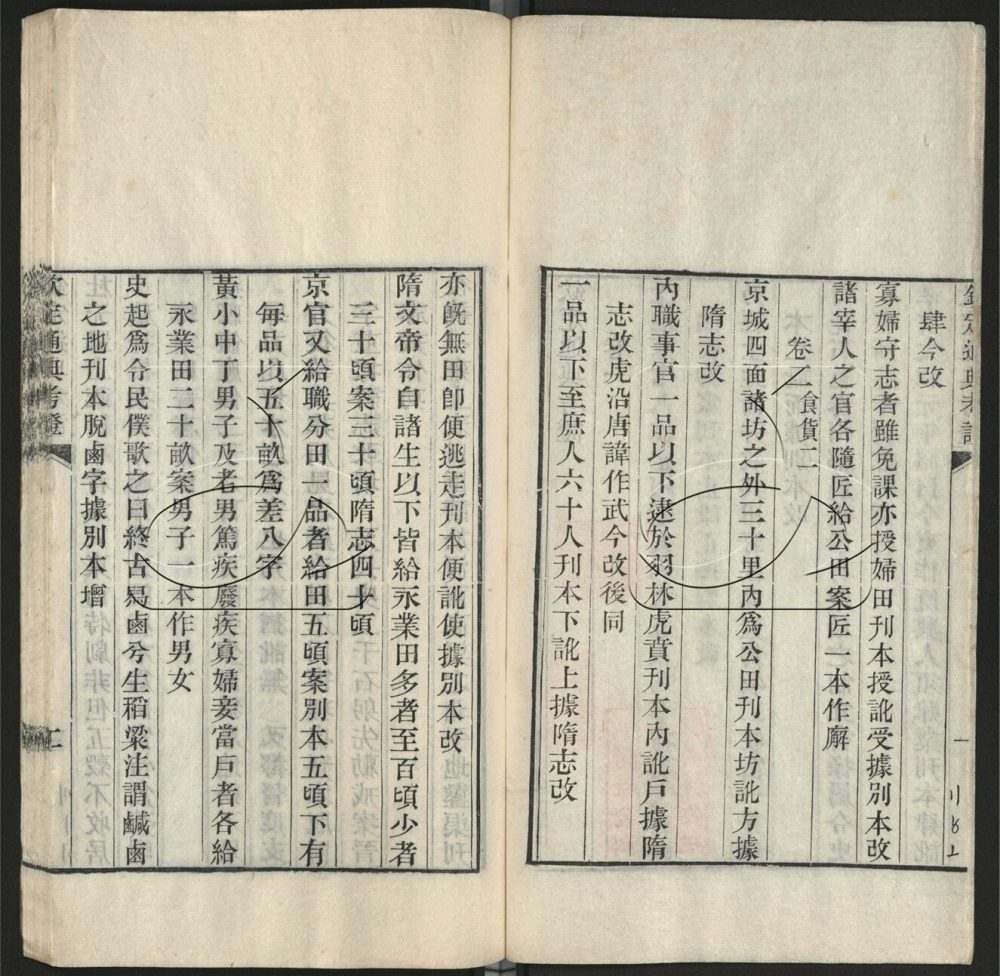 欽定通典考證
肆今改
寡婦守志者雖免課亦授婦田刊本授訛受據別本改
諸宰人之官各隨匠給公田案匠一本作廨
卷二食貨二
京城四面諸坊之外三十里內爲公田刊本坊訛方據
隋志改
內職事官一品以下逮於羽林虎賁刊本內訛戶據隋
志改虎沿唐諱作武今改後同
一品以下至庶人六十人刊本下訛上據隋志改
亦旣無田卽便逃走刊本便訛使據別本改
隋文帝令自諸生以下皆給永業田多者至百頃少者
三十頃案三十頃隋志四十頃
京官又給職分田一品者給田五頃案別本五頃下有
每品以五十畝爲差八字
黃小中丁男子及老男篤疾廢疾寡婦妾當戶者各給
永業田二十畝案男子一本作男女
史起爲令民僕歌之曰終古舄鹵兮生稻梁注謂鹹鹵
之地刊本脫鹵字據別本增
欽定通典考證
二